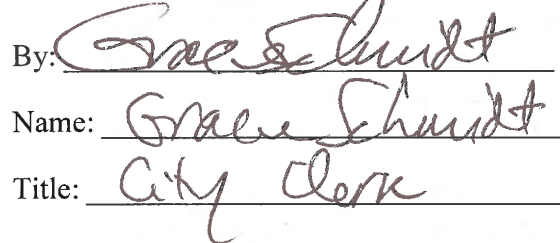 By: Grace Schmidt
Name: Grace Schmidt
Title: City Clerk